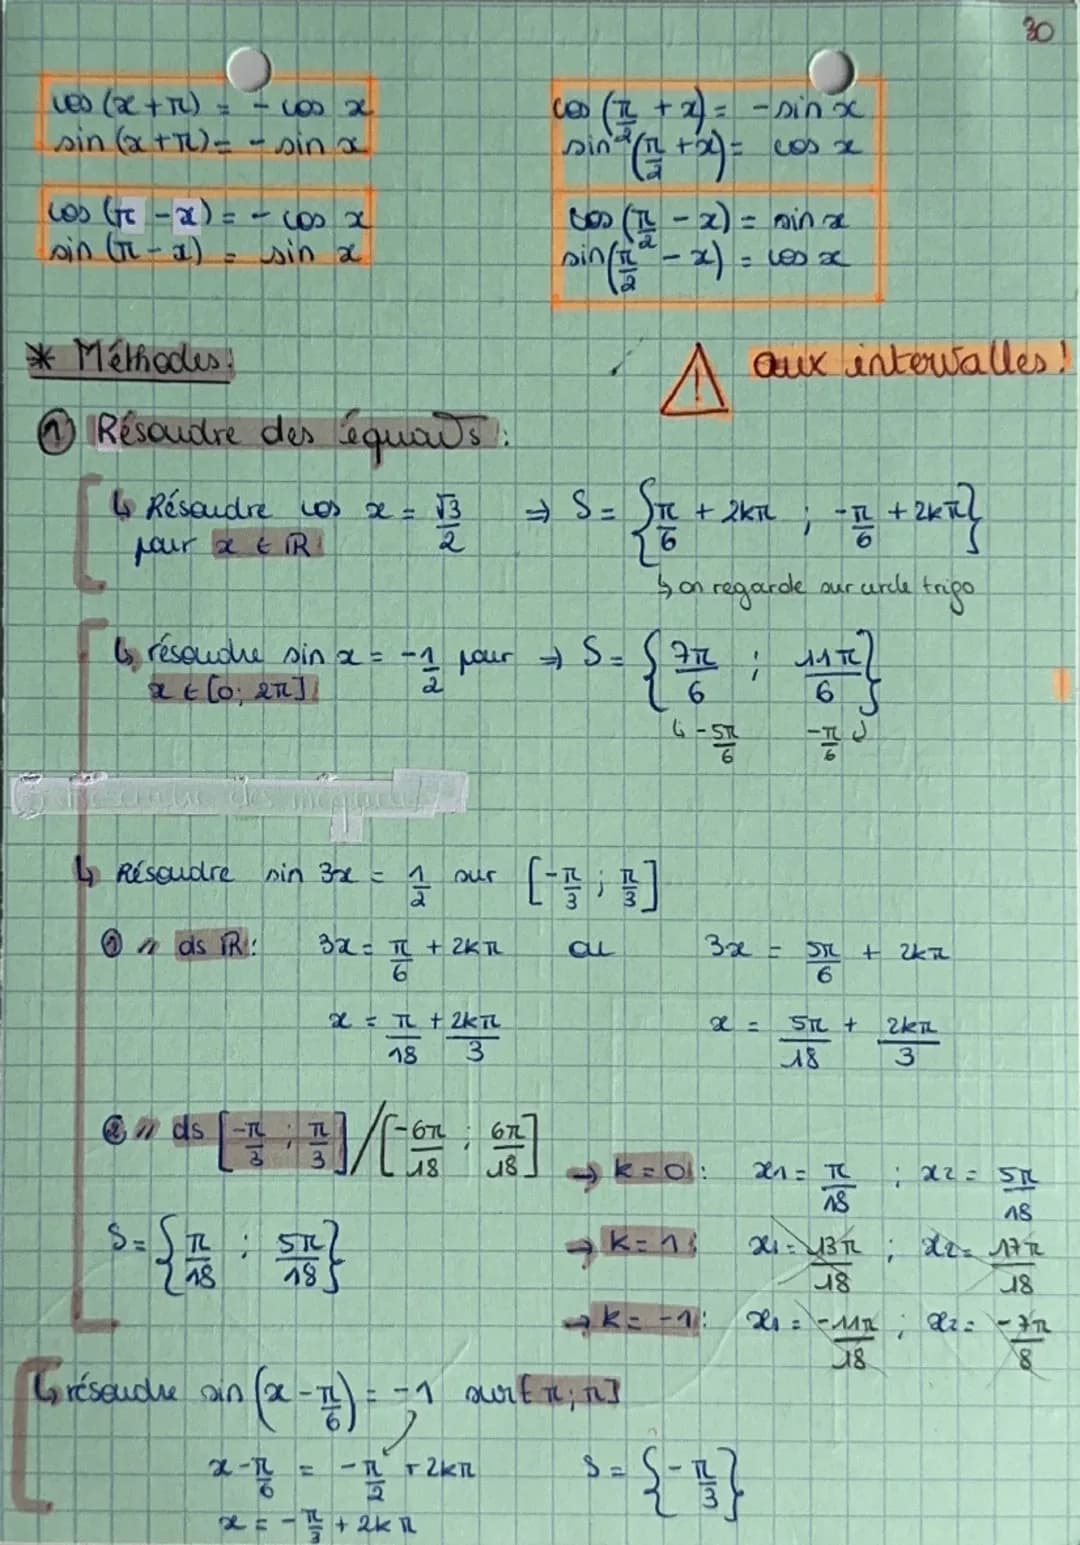 30
cos (x + π) = - cos x
sin (x + π) = - sin x
cos (π - x) = - cos x
sin (π - x) = sin x
cos (π/2 + x) = - sin x
sin (π/2 + x) = cos x
cos (π/2 - x) = sin x
sin (π/2 - x) = cos x
* Méthodes:
⚠ aux intervalles!
① Résoudre des équaᵒs :
↳ Résoudre cos x = √3/2 ⇒ S = {π/6 + 2kπ ; -π/6 + 2kπ}
pour x ∈ ℝ
↳ on regarde sur cercle trigo
↳ résoudre sin x = -1/2 pour ⇒ S = {7π/6 ; 11π/6}
x ∈ [0; 2π]
↳ -5π/6 -π/6 ↲
↳ Résoudre sin 3x = 1/2 sur [-π/3 ; π/3]
① // ds ℝ : 3x = π/6 + 2kπ ou 3x = 5π/6 + 2kπ
x = π/18 + 2kπ/3 x = 5π/18 + 2kπ/3
② // ds [-π/3 ; π/3] / [-6π/18 ; 6π/18]
→ k = 0 : x1 = π/18 ; x2 = 5π/18
S = {π/18 ; 5π/18}
→ k = 1 : x1 = 13π/18 ; x2 = 17π/18
→ k = -1 : x1 = -11π/18 ; x2 = -7π/8
↳ résoudre sin (x - π/6) = -1 sur [π; π]
x - π/6 = -π/2 + 2kπ S = {-π/3}
x = -π/3 + 2kπ